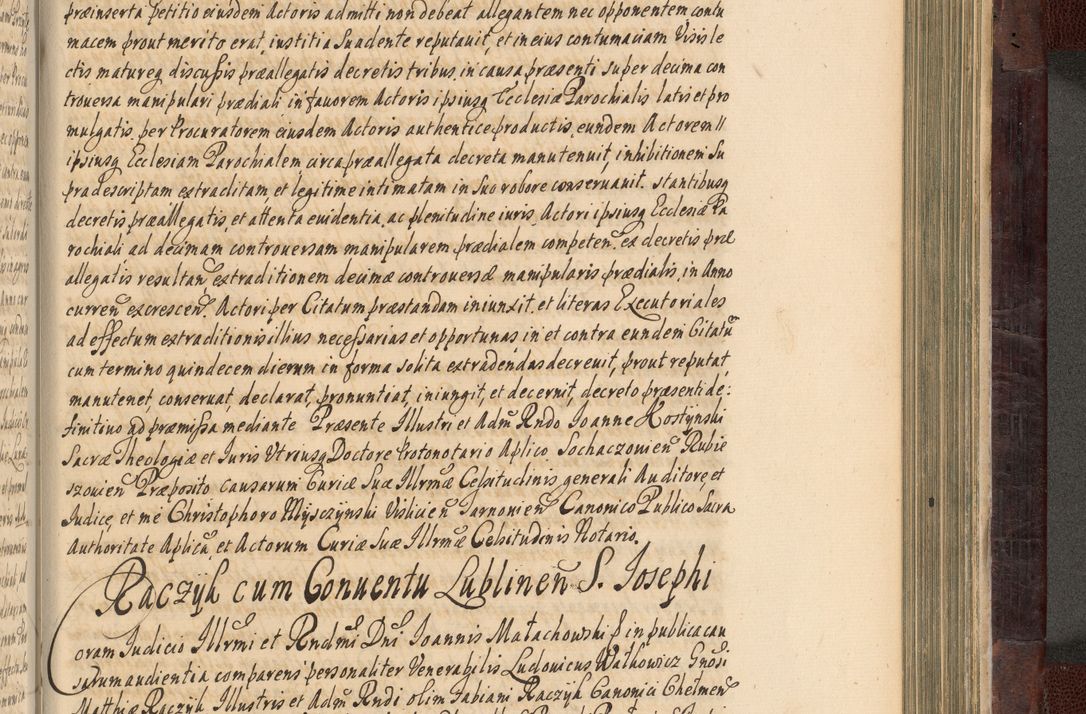 præinserta petitio eiusdem Actoris admitti non debeat allegantem nec opponentem contu
macem prout merito erat, iustitia suadente reputauit, et in eius contumaciam Visis le
ctis matureq discussis præallegatis decretis tribus, in causa præsenti super decima con
trouersa manipulari prædiali in fauorem Actoris ipsiusq Ecclesiæ Parochialis latis et pro
mulgatis per Procuratorem eiusdem Actoris authentice productis, eundem Actorem //
ipsiusq Ecclesiam Parochialem circa præallegata decreta manutenuit, inhibitionem Su
pra descriptam extraditam et legitime intimatam in suo robore conseruauit. stantibusq
decretis præallegatis, et attenta euidentia, ac plenitudine iuris, Actori ipsiusq Ecclesiæ Pa
rochiali ad decimam controuersam manipularem prædialem competen. ex decretis præ
allegatis resultan extraditionem decimæ controuersæ manipularis prædialis, in Anno
curren excrescen. Actori per Citatum præstandam iniunxit. et literas Executoriales
ad effectum extraditionis illius necessarias et opportunas in et contra eundem Citatū
cum termino quindecem dierum in forma solita extradendas decreuit, prout reputat,
manutenet, conseruat, declarat, pronuntiat, iniungit, et decernit, decreto præsenti de:
finitiuo ad præmissa mediante Præsente Illustri et Adm Rndo Ioanne Hostynshi
Sacræ Theologiæ et Iuris Vtriusq Doctore Protonotario Aplico Sochaczouien Rubie
szouien Præposito causarum Curiæ Suæ Illrmæ Celsitudinis generali Auditore, et
Iudice, et me Christophoro Mysczynshi Visliceñ Tarnouien Canonico Publico Sacra
Authoritate Aplica et Actorum Curiæ Suæ Illrmæ Celsitudinis Notario.
Raczyk cum Conuentu Lublineñ S. Iosephi
Coram Iudicio Illrmi et Rndmi Dni Ioannis Małachowshi in publica cau
sarum audientia comparens personaliter Venerabilis Ludouicus Walkowicz Gnosi
Matthiæ Raczyk Illustris et Adm Rndi olim Fabiani Raczyk Canonici Chelmeñ